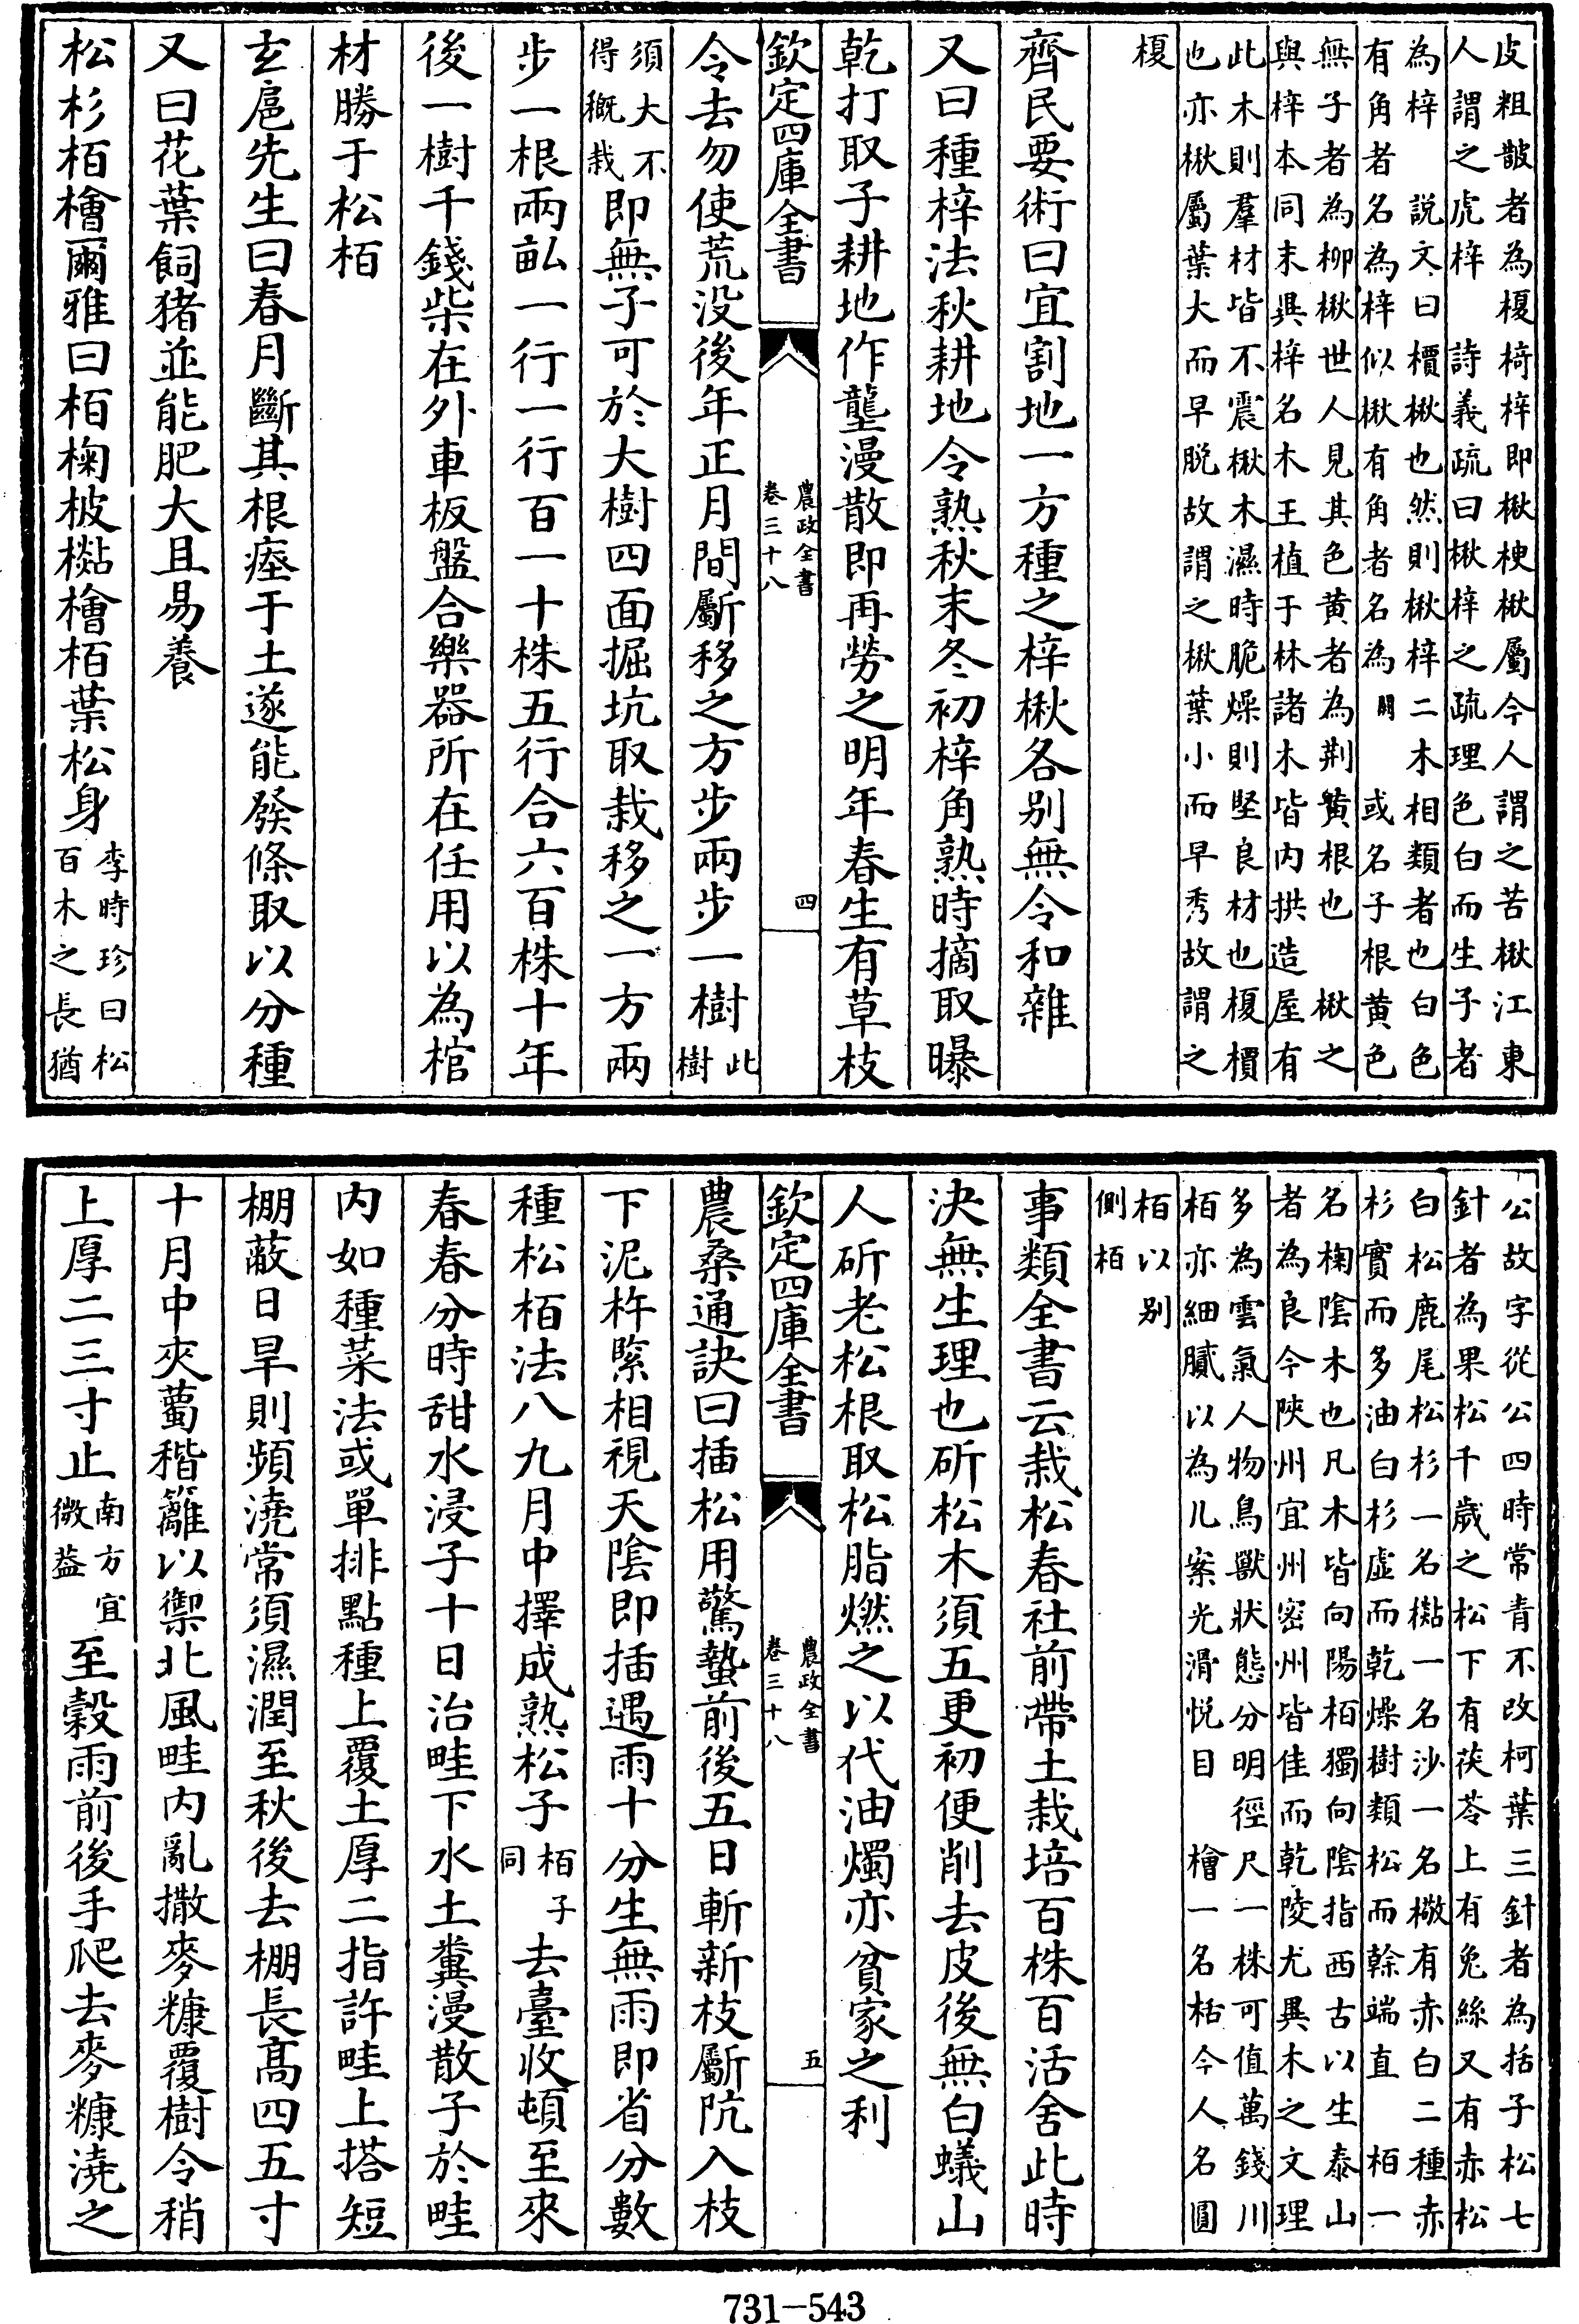 皮粗皵者為榎椅梓即楸梗楸屬今人謂之苦楸江東
人謂之虎梓　詩義疏曰楸梓之疏理色白而生子者
為梓　説文曰檟楸也然則楸梓二木相類者也白色
有角者名為梓似楸有角者名為　或名子根黄色
無子者為柳楸世人見其色黄者為荆黄根也　楸之
與梓本同末異梓名木王植于林諸木皆内拱造屋有
此木則羣材皆不震楸木濕時脆燥則堅良材也榎檟
也亦楸屬葉大而早脱故謂之楸葉小而早秀故謂之
榎
齊民要術曰宜割地一方種之梓楸各别無令和雜
又曰種梓法秋耕地令熟秋末冬初梓角熟時摘取曝
乾打取子耕地作壟漫散即再勞之明年春生有草枝
欽定四庫全書　農政全書　卷三十八　四
令去勿使荒没後年正月間斸移之方步兩步一樹此樹
須大不得概栽即無子可於大樹四面掘坑取栽移之一方兩
步一根兩畝一行一行百一十株五行合六百株十年
後一樹千錢柴在外車板盤合樂器所在任用以為棺
材勝于松栢
玄扈先生曰春月斷其根瘞于土遂能發條取以分種
又曰花葉飼猪並能肥大且易養
松杉栢檜爾雅曰栢椈柀㯳檜栢葉松身李時珍曰松百木之長猶
公故字從公四時常青不改柯葉三針者為括子松七
針者為果松千歲之松下有茯苓上有兔絲又有赤松
白松鹿尾松杉一名㯳一名沙一名樧有赤白二種赤
杉實而多油白杉虛而乾燥樹類松而幹端直　栢一
名椈陰木也凡木皆向陽栢獨向陰指西古以生泰山
者為良今陝州宜州密州皆佳而乾陵尤異木之文理
多為雲氣人物鳥獸狀態分明徑尺一株可值萬錢川
栢亦細膩以為几案光滑悦目　檜一名栝今人名圓
栢以别
側栢
事類全書云栽松春社前帶土栽培百株百活舍此時
決無生理也斫松木須五更初便削去皮後無白蟻山
人斫老松根取松脂燃之以代油燭亦貧家之利
欽定四庫全書　農政全書　卷三十八　五
農桑通訣曰插松用驚蟄前後五日斬新枝斸阬入枝
下泥杵緊相視天陰即插遇雨十分生無雨即省分數
種松栢法八九月中擇成熟松子栢子同去臺收頓至來
春春分時甜水浸子十日治畦下水土糞漫散子於畦
内如種菜法或單排點種上覆土厚二指許畦上搭短
棚蔽日旱則頻澆常須濕潤至秋後去棚長高四五寸
十月中夾薥稭籬以禦北風畦内亂撒麥糠覆樹令稍
上厚二三寸止南方宜微葢至穀雨前後手爬去麥糠澆之
731-543